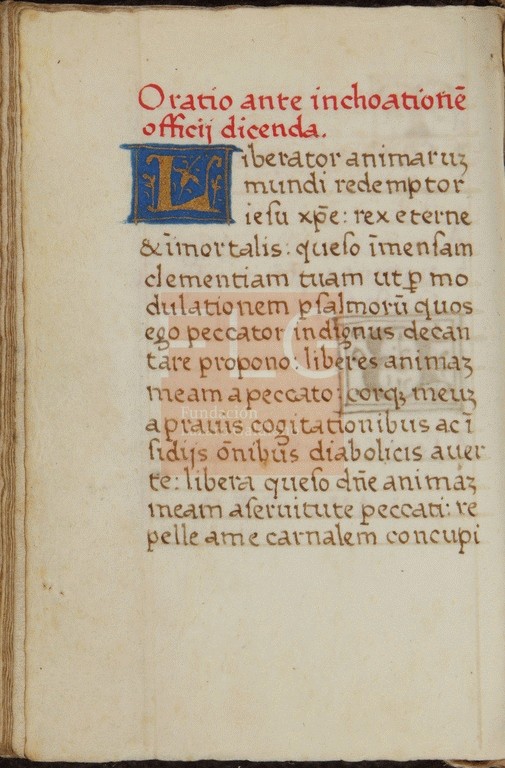 Oratio ante inchoationē
officij dicenda.
Liberator animaruꝫ
mundi redemptor
iesu xp̄e: rex eterne
& īmortalis: queso īmensam
clementiam tuam ut ꝑ mo
dulationem psalmorū quos
ego peccator indignus decan
tare propono: liberes animaꝫ
meam a peccato: corqꝫ meuꝫ
a prauis cogitationibus ac ī
sidijs ōnibus diabolicis auer
te: libera queso dn̄e animaꝫ
meam a seruitute peccati: re
pelle a me carnalem concupi
Fundación